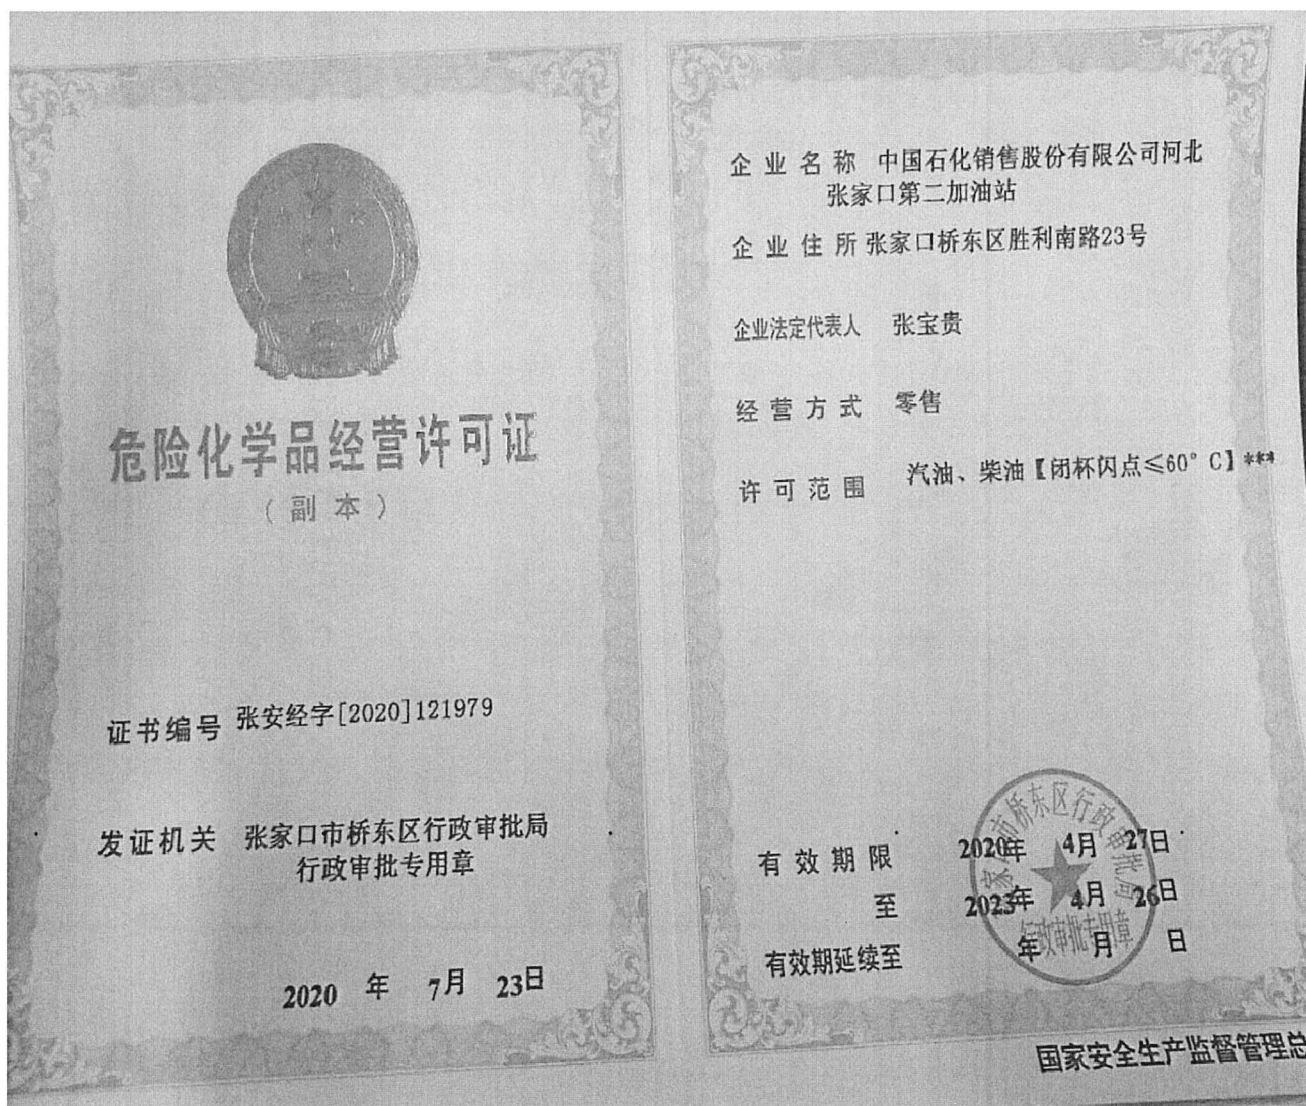 危险化学品经营许可证
（副本）
证书编号 张安经字[2020]121979
发证机关 张家口市桥东区行政审批局
行政审批专用章
2020 年 7月 23日
企业名称 中国石化销售股份有限公司河北
张家口第二加油站
企业住所 张家口桥东区胜利南路23号
企业法定代表人 张宝贵
经营方式 零售
许可范围 汽油、柴油【闭杯闪点≤60°C】***
有效期限 2020年 4月 27日
至 2023年 4月 26日
有效期延续至 年 月 日
家口市桥东区行政审批局
行政审批专用章
国家安全生产监督管理总